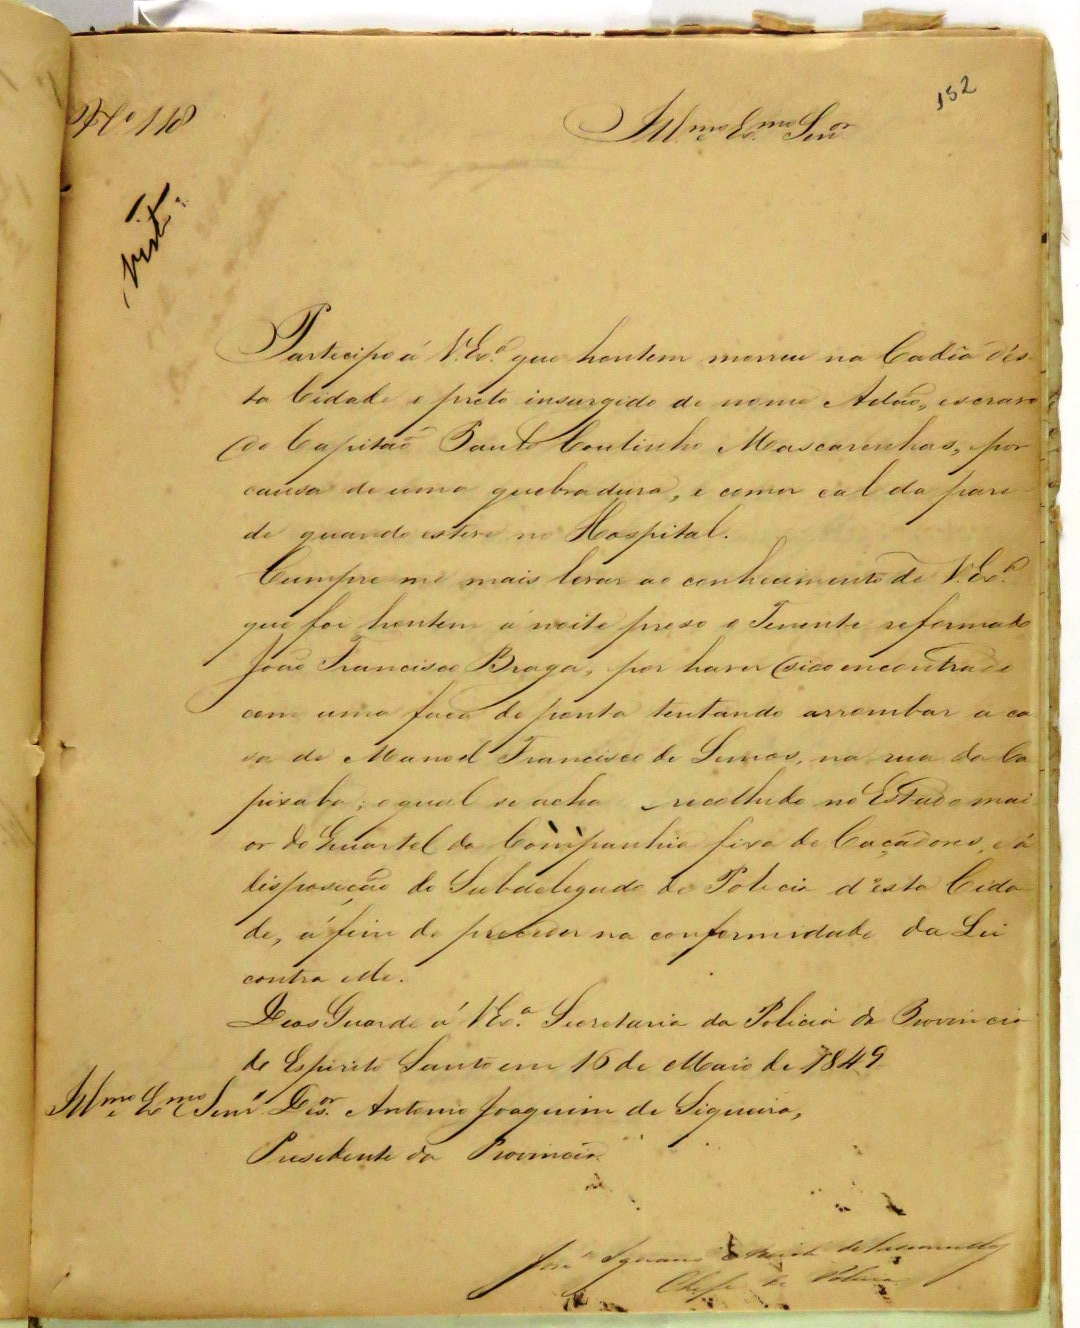 152
N.º 118
Ill.mo e Ex.mo Senr.
Visto
Participo á V. Ex.ª que hontem morreu na Cadêa dés-
ta Cidade o preto insurgido de nome Adão, escravo
do Capitaõ Paulo Coutinho Mascarenhas, por
causa de uma quebradura, e comer cal da pare-
de quando esteve no Hospital.
Cumpre me mais levar ao conhecimento de V. Ex.ª
que foi hontem á noite preso o Tenente reformado
Joaõ Francisco Braga, por haver sido encontrado
com uma faca de ponta tentando arrombar a ca
sa de Manoel Francisco de Lemos, na rua da Ca
pixaba; o qual se acha recolhido no Estado mai
or do Quartel da Companhia fixa de Caçadores, e á
disposiçaõ do Subdelegado de Policia d'esta Cida
de, á fim de proceder na conformidade da Lei
contra elle.
Deos Guarde á V. Ex.ª Secretaria da Policia da Provincia
do Espirito Santo em 16 de Maio de 1849
Ill.mo e Ex.mo Senr. Des.or Antonio Joaquim de Siqueira,
Presidente da Provincia
José Ignacio Accioli de Vasconcellos
Chefe de Policia